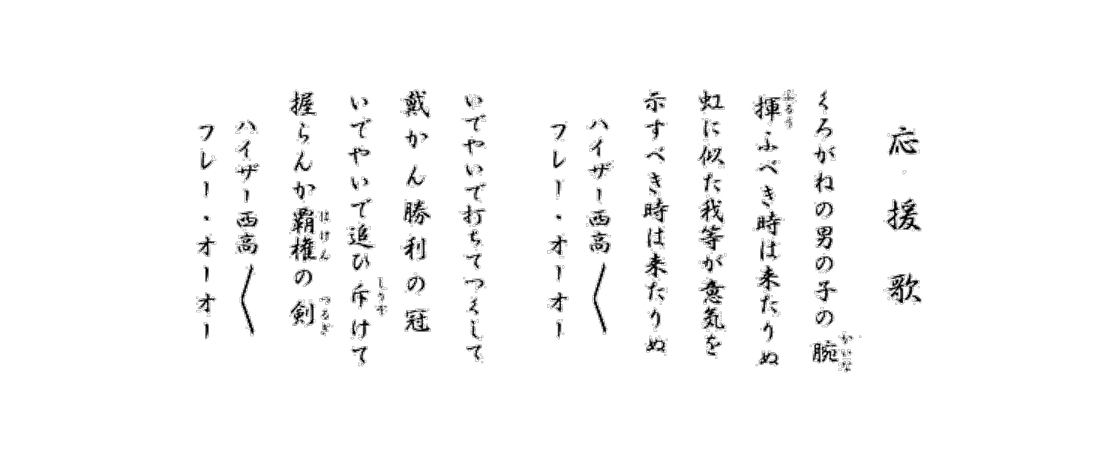 応援歌
くろがねの男の子の腕
かいな
揮ふべき時は来たりぬ
ふるう
虹に似た我等が意気を
示すべき時は来たりぬ
ハイザー西高〱
フレー・オーオー
いでやいで打ちてつくして
戴かん勝利の冠
いでやいで追ひ斥けて
しりぞ
握らんか覇権の剣
はけん
つるぎ
ハイザー西高〱
フレー・オーオー